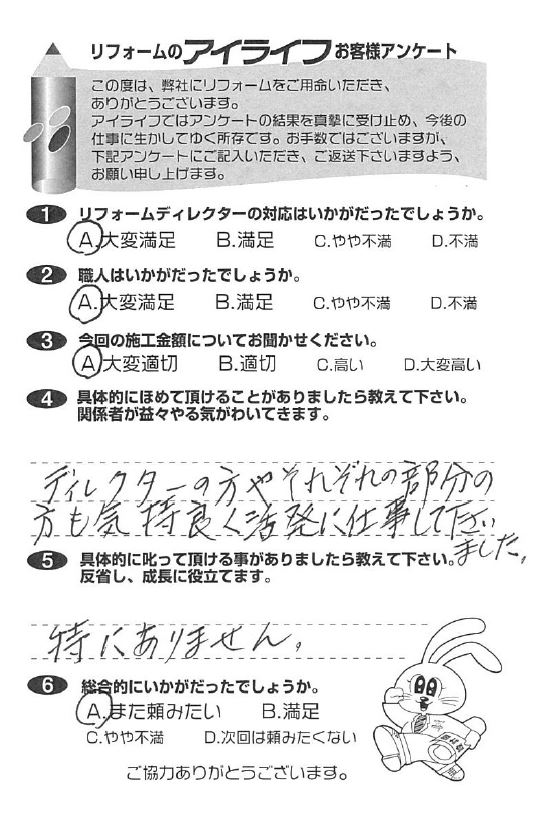 リフォームのアイライフお客様アンケート
この度は、弊社にリフォームをご用命いただき、
ありがとうございます。
アイライフではアンケートの結果を真摯に受け止め、今後の
仕事に生かしてゆく所存です。お手数ではございますが、
下記アンケートにご記入いただき、ご返送下さいますよう、
お願い申し上げます。
1 リフォームディレクターの対応はいかがだったでしょうか。
A.大変満足 B.満足 C.やや不満 D.不満
2 職人はいかがだったでしょうか。
A.大変満足 B.満足 C.やや不満 D.不満
3 今回の施工金額についてお聞かせください。
A.大変適切 B.適切 C.高い D.大変高い
4 具体的にほめて頂けることがありましたら教えて下さい。
関係者が益々やる気がわいてきます。
ディレクターの方やそれぞれの部分の
方も気持良く活発に仕事して下さい
ました。
5 具体的に叱って頂ける事がありましたら教えて下さい。
反省し、成長に役立てます。
特にありません。
6 総合的にいかがだったでしょうか。
A.また頼みたい B.満足
C.やや不満 D.次回は頼みたくない
ご協力ありがとうございます。